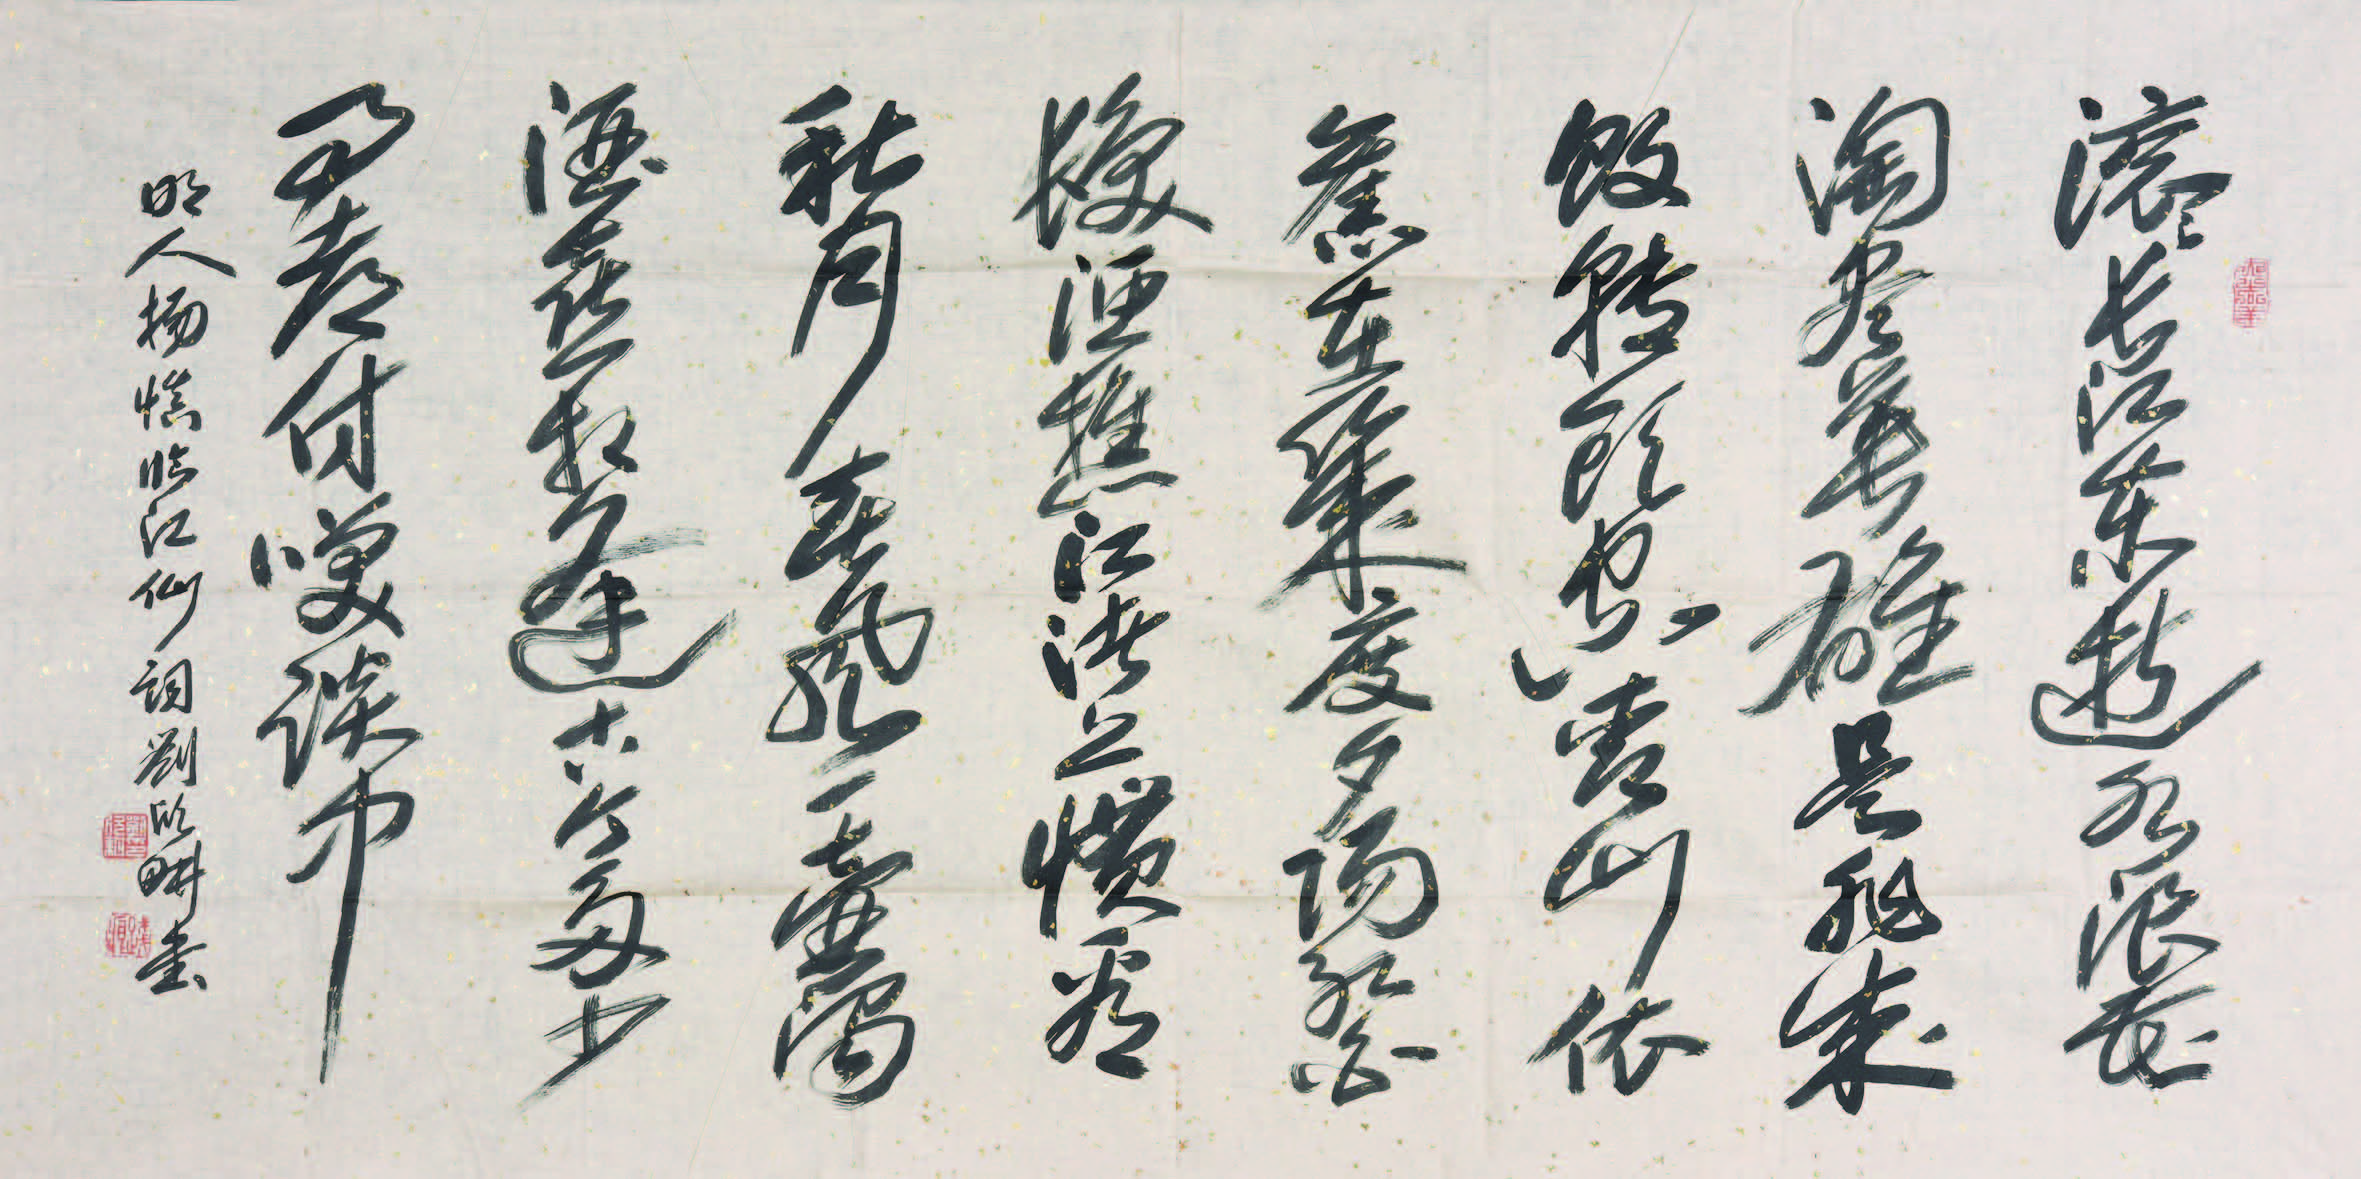 滚滚长江东逝水浪花
淘尽英雄是非成
败转头空青山依
舊在幾度夕陽红白
髮渔樵江渚上惯看
秋月春风一壶濁
酒喜相逢古今多少
事都付咲谈中
明人楊慎临江仙词劉欣耕书